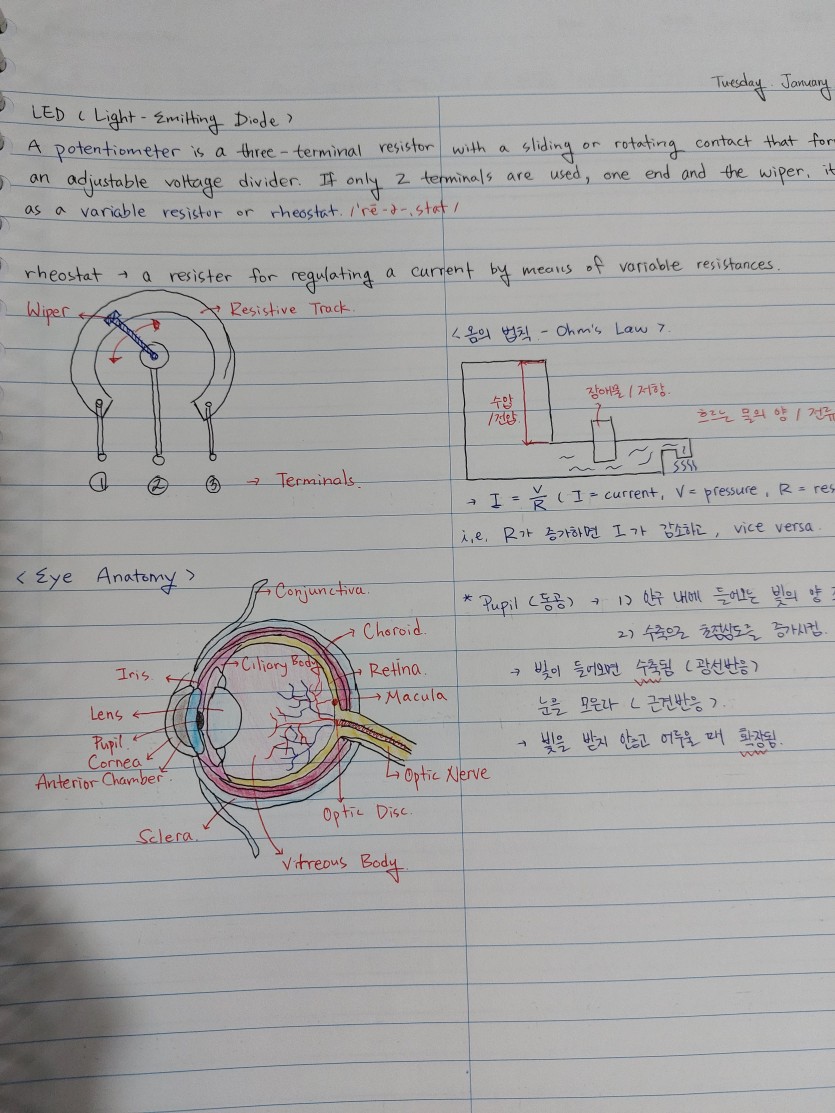 Tuesday. January
LED < Light-Emitting Diode >
A potentiometer is a three-terminal resistor with a sliding or rotating contact that for
an adjustable voltage divider. If only 2 terminals are used, one end and the wiper, it
as a variable resistor or rheostat. /'rē-ə-,stat/
rheostat → a resister for regulating a current by means of variable resistances.
Wiper
Resistive Track.
① ② ③ → Terminals.
<옴의 법칙 - Ohm's Law>.
수압
/전압
장애물/저항.
흐르는 물의 양 / 전류
→ I = V/R ( I = current, V = pressure, R = res
i.e. R가 증가하면 I가 감소하고, vice versa.
<Eye Anatomy>
Conjunctiva.
Choroid.
Ciliary Body
Iris.
Retina.
Macula
Lens
Pupil
Cornea
Anterior Chamber.
Optic Nerve
Optic Disc.
Sclera.
Vitreous Body.
* Pupil (동공) → 1) 안구 내에 들어오는 빛의 양
2) 수축으로 초점심도를 증가시킴.
→ 빛이 들어오면 수축됨 (광선반응)
눈을 모은다 ( 근견반응 ).
→ 빛을 받지 않고 어두울 때 확장됨.